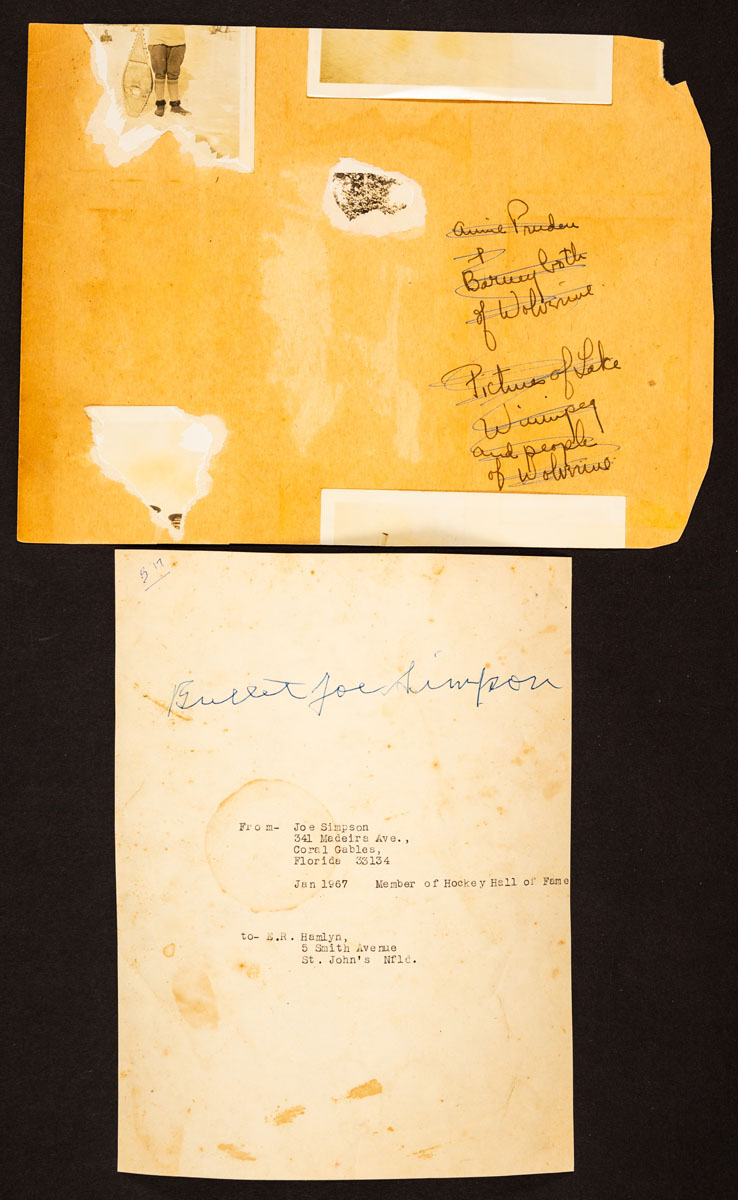 Annie Pruden
+
Barney both
of Wolverine
Pictures of Lake
Winnipeg
and people
of Wolverine
Bullet Joe Simpson
From- Joe Simpson
341 Madeira Ave.,
Coral Gables,
Florida 33134
Jan 1967 Member of Hockey Hall of Fame
to- E.R. Hamlyn,
5 Smith Avenue
St. John's Nfld.